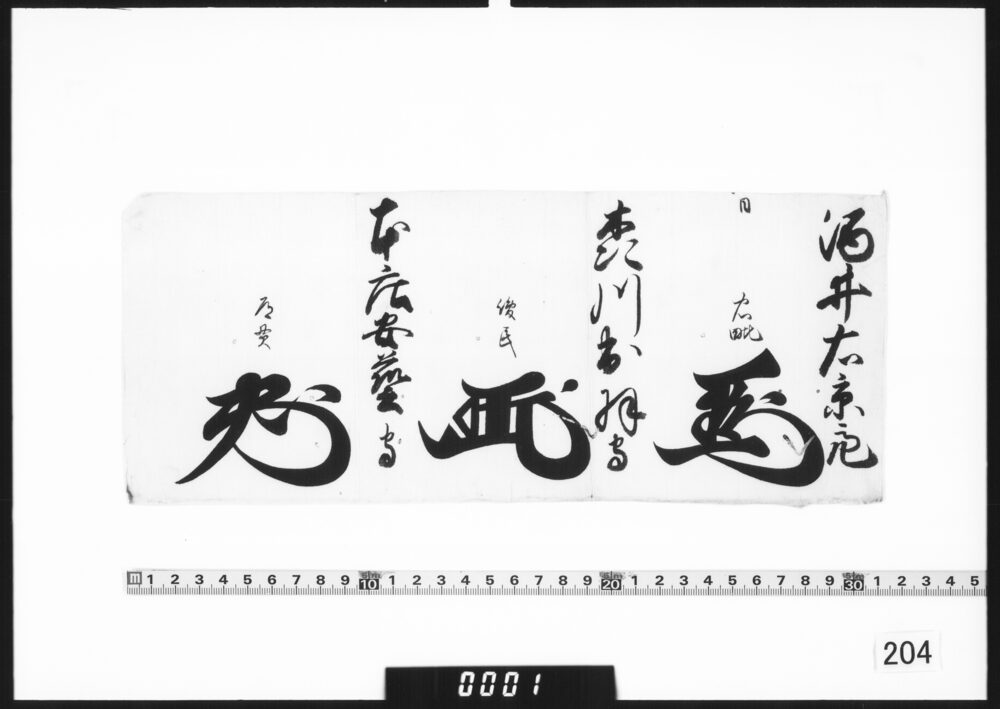 酒井右京亮
忠毗
森川出羽守
俊民
本庄安藝守
道貫
m 1 2 3 4 5 6 7 8 9 10 1 2 3 4 5 6 7 8 9 20 1 2 3 4 5 6 7 8 9 30 1 2 3 4 5
204
0001